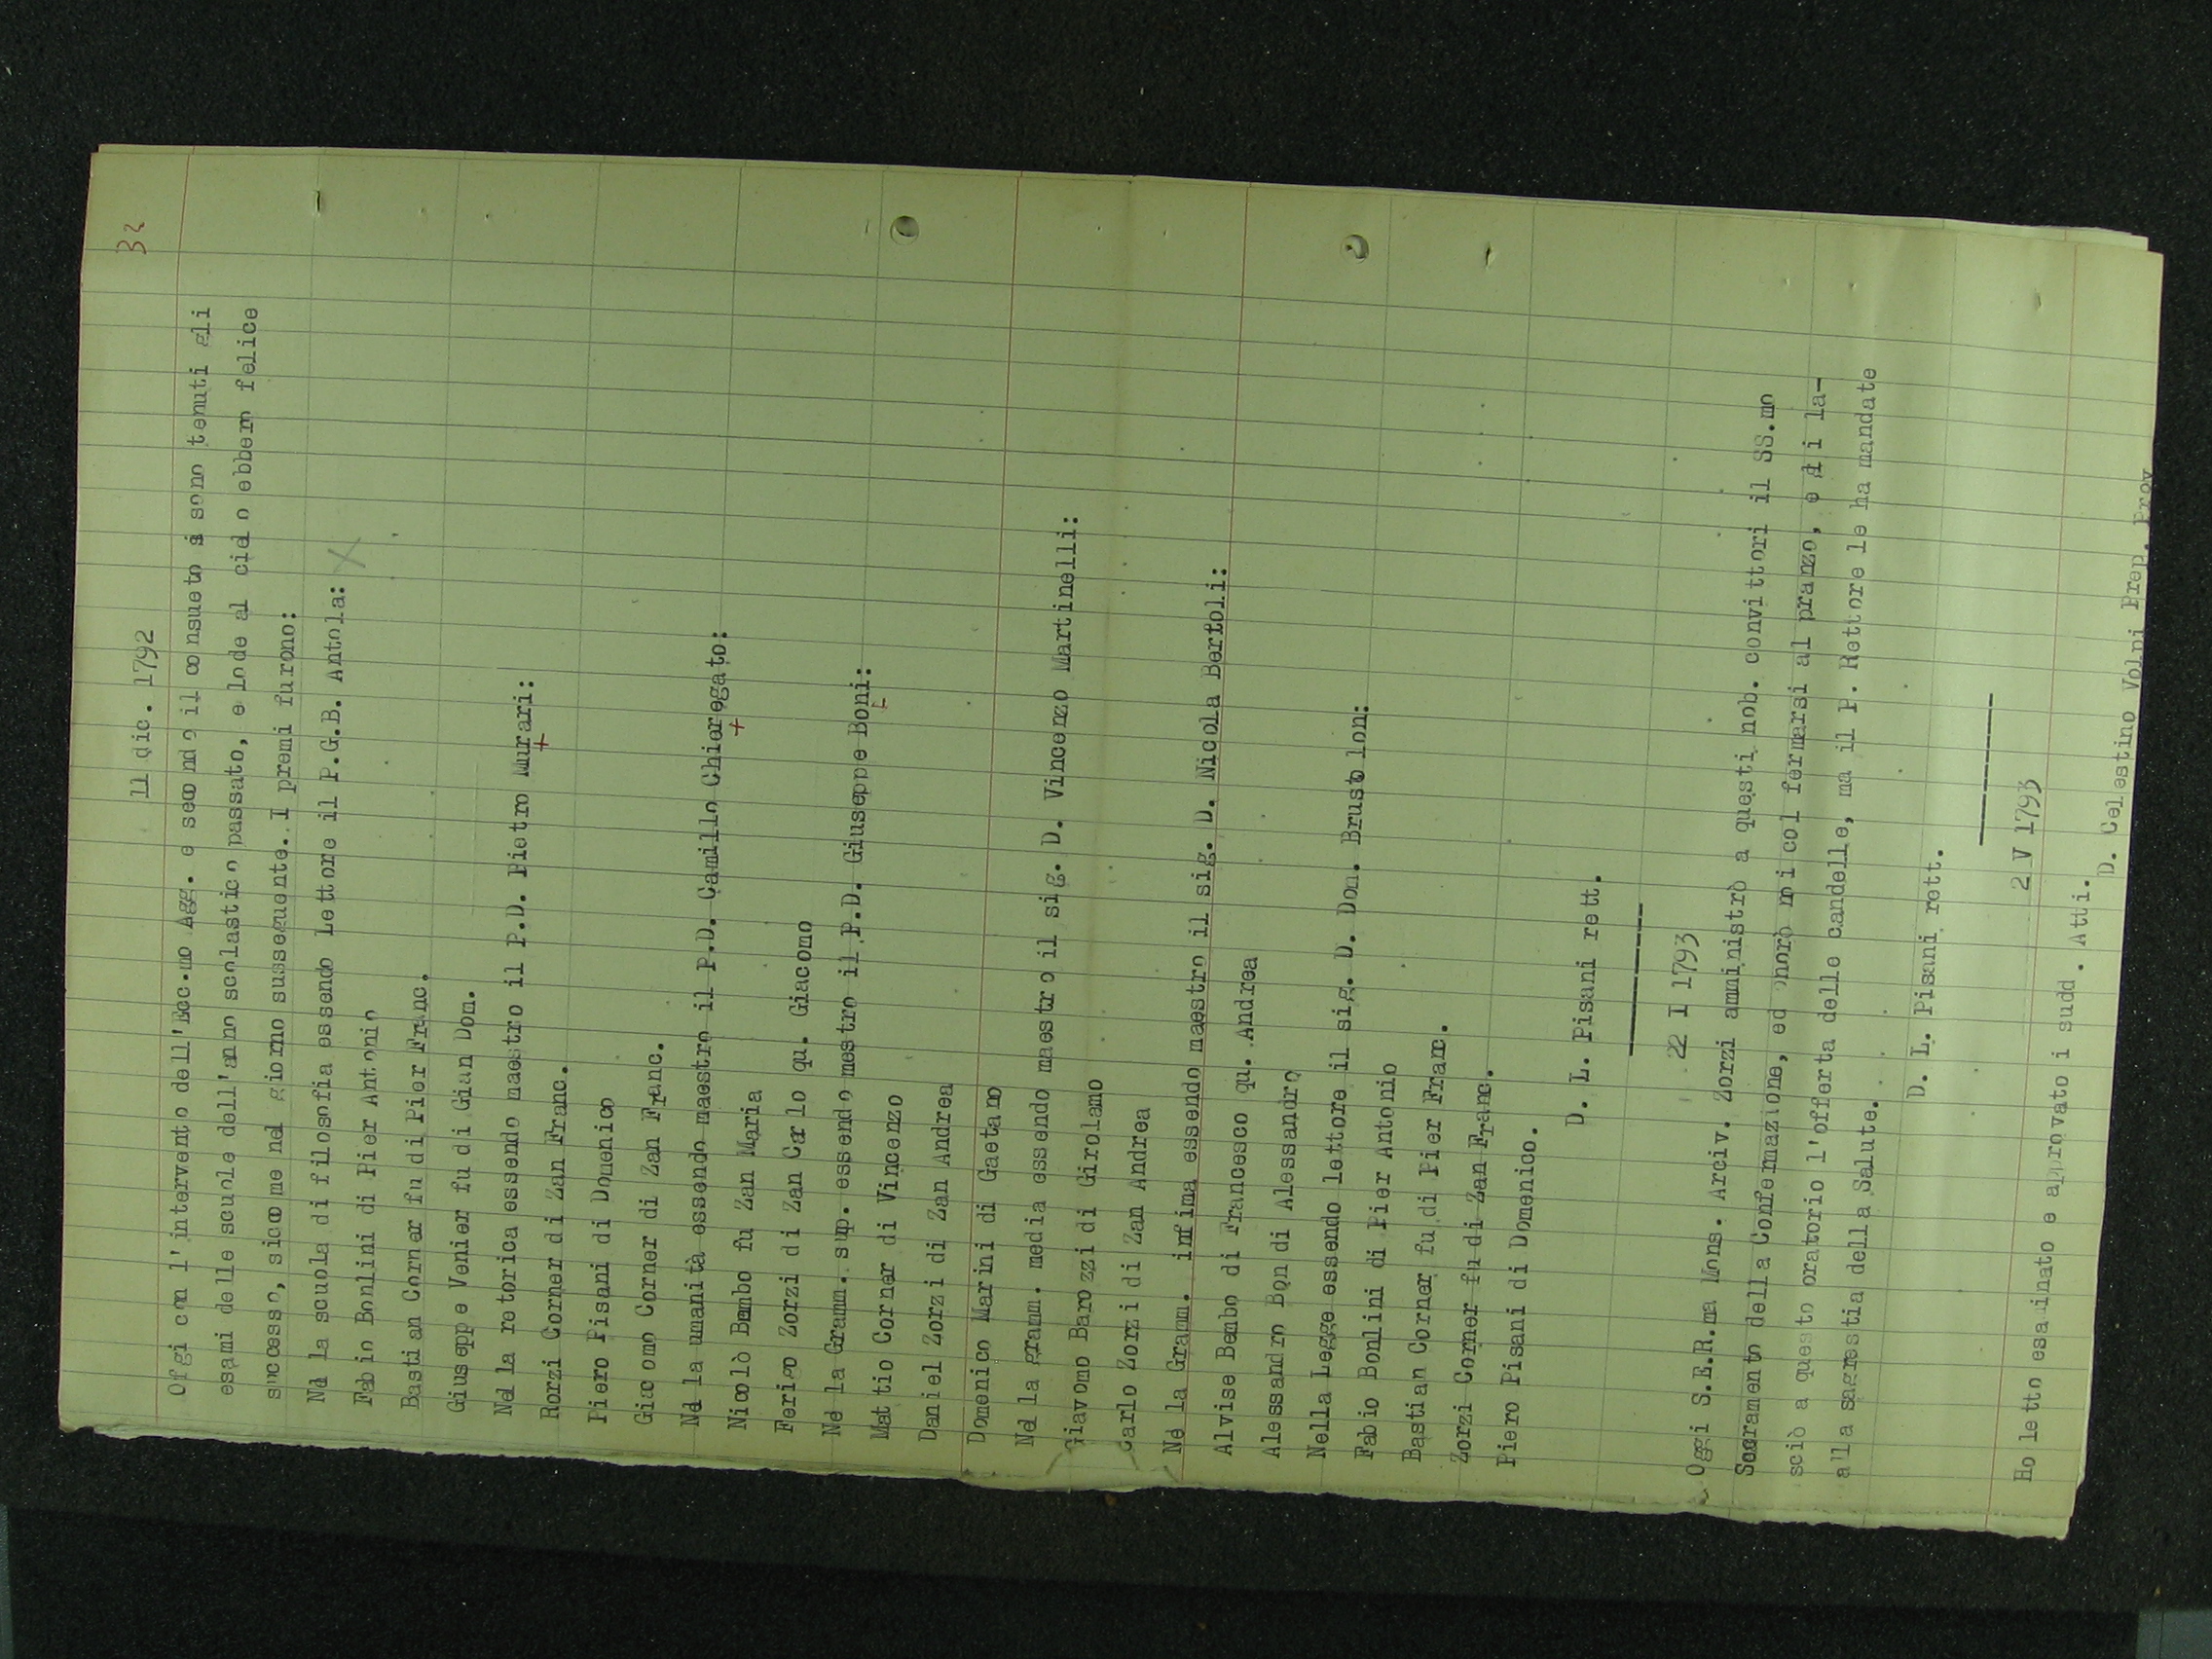 32
11 dic. 1792
Ofgi con l'intervento dell'Ecc.mo Agg. e secondo il consueto si sono tenuti gli
esami delle scuole dell'anno scolastico passato, e lode al cielo ebbero felice
successo, siccome nel giorno susseguente. I premi furono:
Nella scuola di filosofia essendo Lettore il P.G.B. Antola:
Fabio Bonlini di Pier Antonio
Bastian Corner fu di Pier Franc.
Giuseppe Venier fu di Gian Dom.
Nella retorica essendo maestro il P.D. Pietro Murari:
Rorzi Corner di Zan Franc.
Piero Pisani di Domenico
Giacomo Corner di Zan Franc.
Nella umanità essendo maestro il P.D. Camillo Chieregato:
Nicolò Bembo fu Zan Maria
Ferigo Zorzi di Zan Carlo qu. Giacomo
Nela Gramm. sup. essendo mestro il P.D. Giuseppe Boni:
Mattio Corner di Vincenzo
Daniel Zorzi di Zan Andrea
Domenico Marini di Gaetano
Nella gramm. media essendo maestro il sig. D. Vincenzo Martinelli:
Giavomo Barozzi di Girolamo
Carlo Zorzi di Zan Andrea
Nela Gramm. infima essendo maestro il sig. D. Nicola Bertoli:
Alvise Bembo di Francesco qu. Andrea
Alessandro Bon di Alessandro
Nella Legge essendo lettore il sig. D. Dom. Brustolon:
Fabio Bonlini di Pier Antonio
Bastian Corner fu di Pier Franc.
Zorzi Corner fu di Zan Franc.
Piero Pisani di Domenico.
D. L. Pisani rett.
22 I 1793
Oggi S.E.R.ma Mons. Arciv. Zorzi amministrò a questi nob. convittori il SS.mo
Sacramento della Confermazione, ed onorò noi col fermarsi al pranzo, e di la-
sciò a questo oratorio l'offerta delle candelle, ma il P. Rettore le ha mandate
alla sagrestia della Salute.
D. L. Pisani rett.
2 V 1793
Ho letto esa inato e approvato i sudd. Atti.
D. Celestino Volpi Prep. Prov